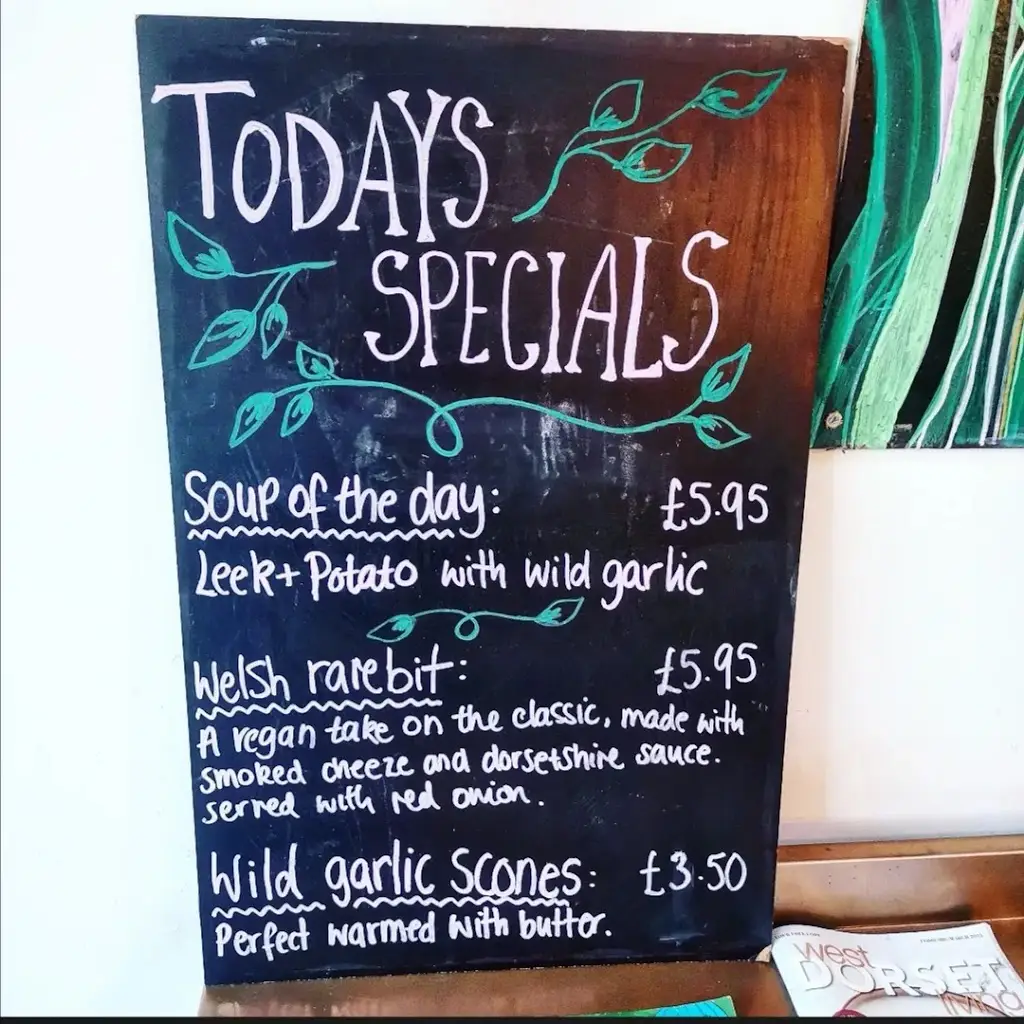 TODAYS
SPECIALS
Soup of the day: £5.95
Leek + Potato with wild garlic
Welsh rarebit: £5.95
A vegan take on the classic, made with
smoked cheeze and dorsetshire sauce.
served with red onion.
Wild garlic scones: £3.50
Perfect warmed with butter.
West
DORSET